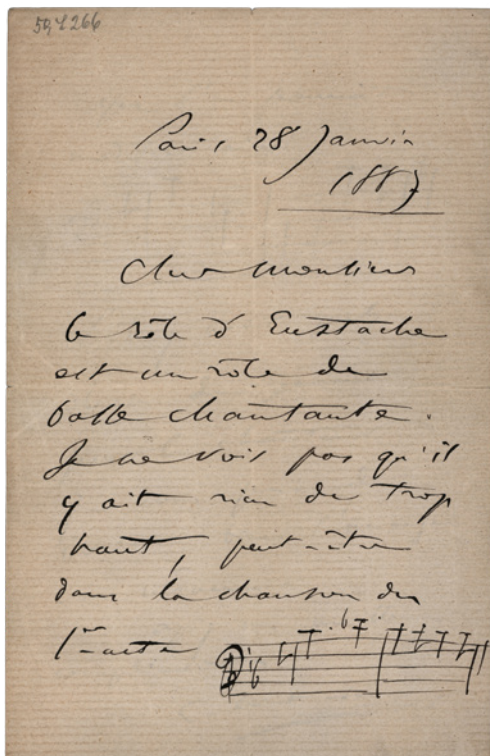 Paris 28 Janvier
1887
Cher Monsieur
le rôle d'Eustache
est un rôle de
basse chantante.
Je ne vois pas qu'il
y ait rien de trop
haut, peut-être
dans la chanson du
1er acte